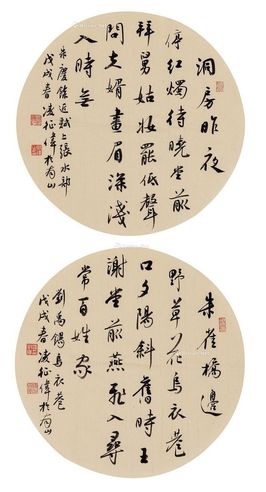 洞房昨夜
停紅燭待曉堂前
拜舅姑妝罷低聲
問夫婿畫眉深淺
入時無
朱慶餘近試上張水部
戊戌春凌征偉於山
朱雀橋邊
野草花烏衣巷
口夕陽斜舊時王
謝堂前燕飛入尋
常百姓家
劉禹錫烏衣巷
戊戌春凌征偉於山